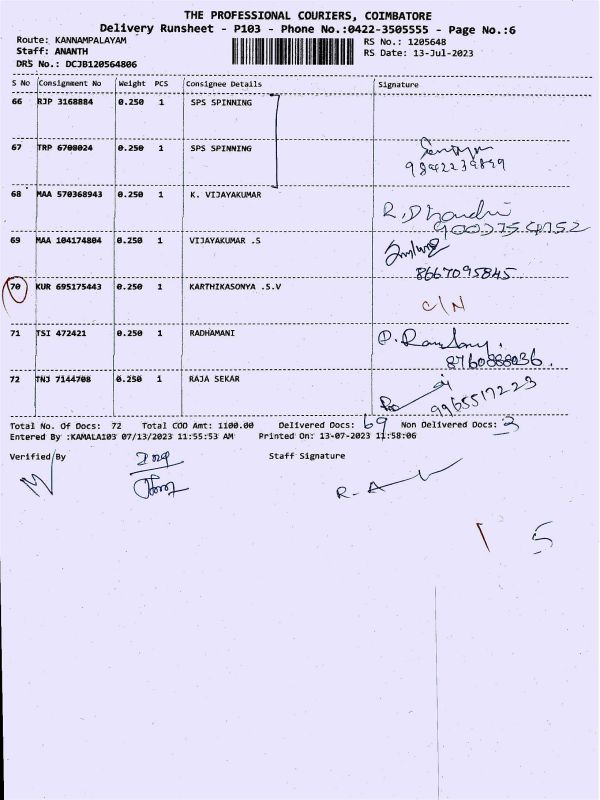 THE PROFESSIONAL COURIERS, COIMBATORE
Delivery Runsheet - P103 - Phone No.:0422-3505555 - Page No.:6
Route: KANNAMPALAYAM RS No.: 1205648
Staff: ANANTH RS Date: 13-Jul-2023
DRS No.: DCJB120564806
S No Consignment No Weight PCS Consignee Details Signature
66 RJP 3168884 0.250 1 SPS SPINNING
67 TRP 6708024 0.250 1 SPS SPINNING
9842239899
68 MAA 570368943 0.250 1 K. VIJAYAKUMAR R. Dhandri
9003754752
69 MAA 104174804 0.250 1 VIJAYAKUMAR .S
8667095845
70 KUR 695175443 0.250 1 KARTHIKASONYA .S.V C/N
71 TSI 472421 0.250 1 RADHAMANI
8760888036.
72 TNJ 7144708 0.250 1 RAJA SEKAR
9965517223
Total No. Of Docs: 72 Total COD Amt: 1100.00 Delivered Docs: 69 Non Delivered Docs: 3
Entered By :KAMALA103 07/13/2023 11:55:53 AM Printed On: 13-07-2023 11:58:06
Verified By Staff Signature
R. A
1 5